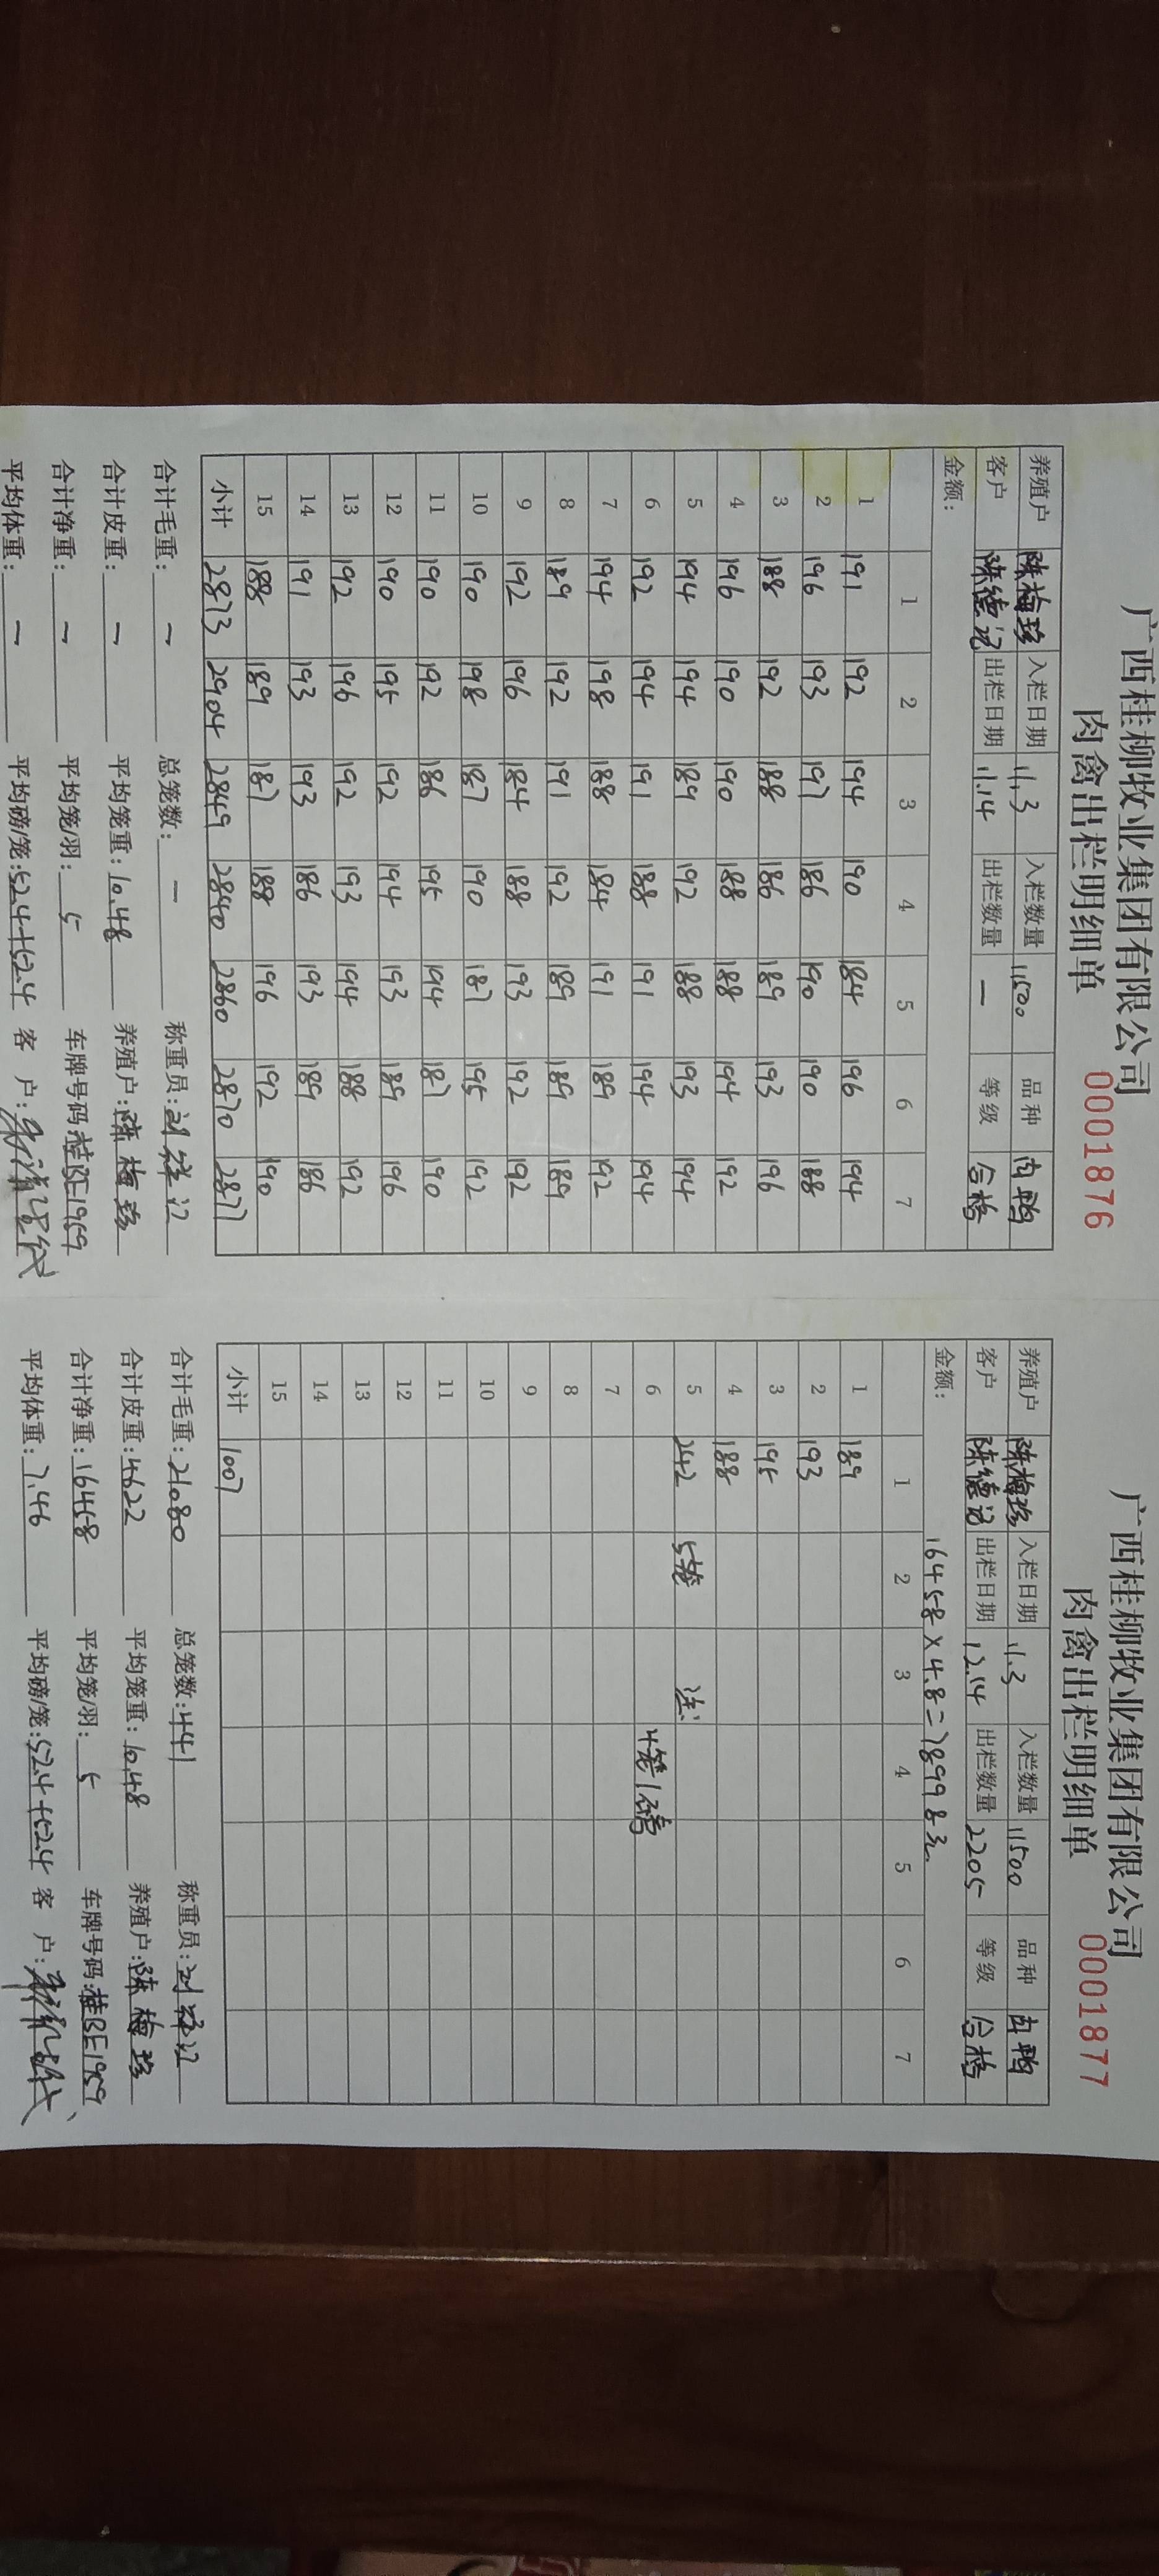 广西桂柳牧业集团有限公司
肉禽出栏明细单 0001876
养殖户 陈梅珍 入栏日期 11.3 入栏数量 11500 品种 肉鸭
客户 陈德记 出栏日期 11.14 出栏数量 — 等级 合格
金额：
1 2 3 4 5 6 7
1 191 192 194 190 184 196 194
2 196 193 197 186 190 190 188
3 188 192 188 186 189 193 196
4 196 190 190 188 188 194 192
5 194 194 189 192 188 193 194
6 192 194 191 188 191 194 194
7 194 198 188 184 191 189 192
8 189 192 191 192 189 189 189
9 192 196 184 188 193 192 192
10 190 198 187 190 187 195 192
11 190 192 186 195 194 187 190
12 190 195 192 194 193 189 196
13 192 196 192 193 194 188 192
14 191 193 193 186 193 189 186
15 188 189 187 188 196 192 190
小计 2873 2904 2849 2840 2860 2870 2877
合计毛重：— 总笼数：— 称重员：
合计皮重：— 平均笼重：10.48 养殖户：陈梅珍
合计净重：— 平均笼/羽：5 车牌号码：桂BE1969
平均体重：— 平均磅/笼：52.4+52.4 客 户：
广西桂柳牧业集团有限公司
肉禽出栏明细单 0001877
养殖户 陈梅珍 入栏日期 11.3 入栏数量 11500 品种 肉鸭
客户 陈德记 出栏日期 12.14 出栏数量 2205 等级 合格
金额： 16458×4.8=78998元
1 2 3 4 5 6 7
1 189
2 193
3 195
4 188
5 242 5笼 注:
6 4笼1磅
7
8
9
10
11
12
13
14
15
小计 1007
合计毛重：21080 总笼数：441 称重员：
合计皮重：4622 平均笼重：10.48 养殖户：陈梅珍
合计净重：16458 平均笼/羽：5 车牌号码：桂BE1969
平均体重：7.46 平均磅/笼：52.4+52.4 客 户：